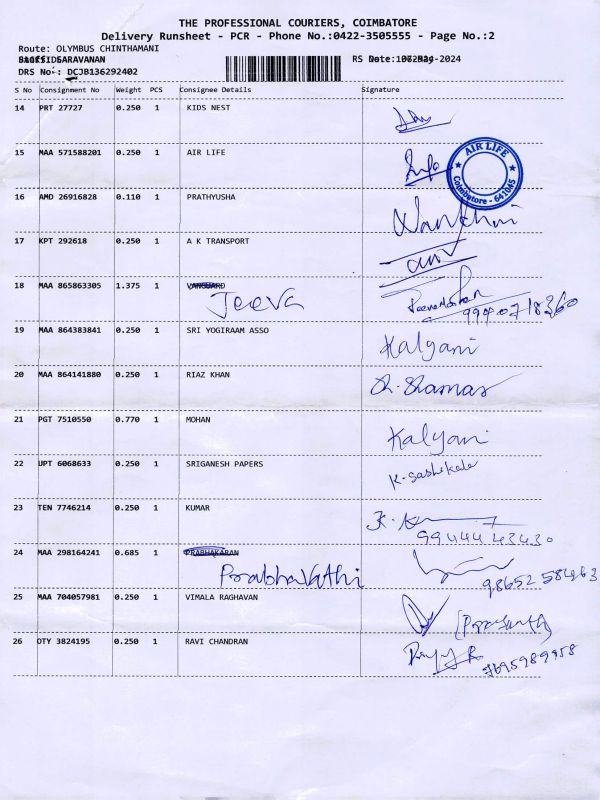 THE PROFESSIONAL COURIERS, COIMBATORE
Delivery Runsheet - PCR - Phone No.:0422-3505555 - Page No.:2
Route: OLYMBUS CHINTHAMANI
SARAVANAN
DRS No.: DCJB136292402
S No Consignment No Weight PCS Consignee Details Signature
14 PRT 27727 0.250 1 KIDS NEST
15 MAA 571588201 0.250 1 AIR LIFE
AIR LIFE
Coimbatore - 641045
16 AMD 26916828 0.110 1 PRATHYUSHA
17 KPT 292618 0.250 1 A K TRANSPORT
18 MAA 865863305 1.375 1 VANGUARD
Jeeva
19 MAA 864383841 0.250 1 SRI YOGIRAAM ASSO Kalyani
20 MAA 864141880 0.250 1 RIAZ KHAN
21 PGT 7510550 0.770 1 MOHAN Kalyani
22 UPT 6068633 0.250 1 SRIGANESH PAPERS K. Sashikala
23 TEN 7746214 0.250 1 KUMAR
9944443430
24 MAA 298164241 0.685 1 PRABHAKARAN
Prabhavathi
25 MAA 704057981 0.250 1 VIMALA RAGHAVAN (Prasanth)
26 OTY 3824195 0.250 1 RAVI CHANDRAN